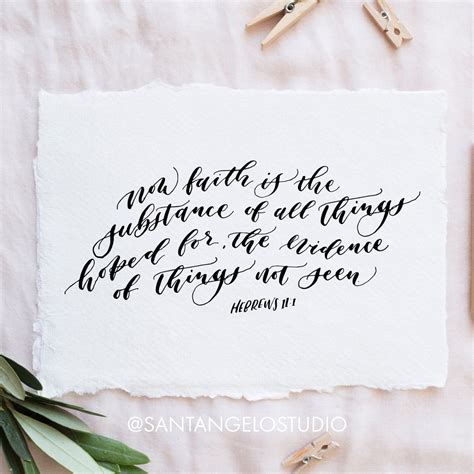 now faith is the
substance of all things
hoped for, the evidence
of things not seen
HEBREWS 11:1
@SANTANGELOSTUDIO